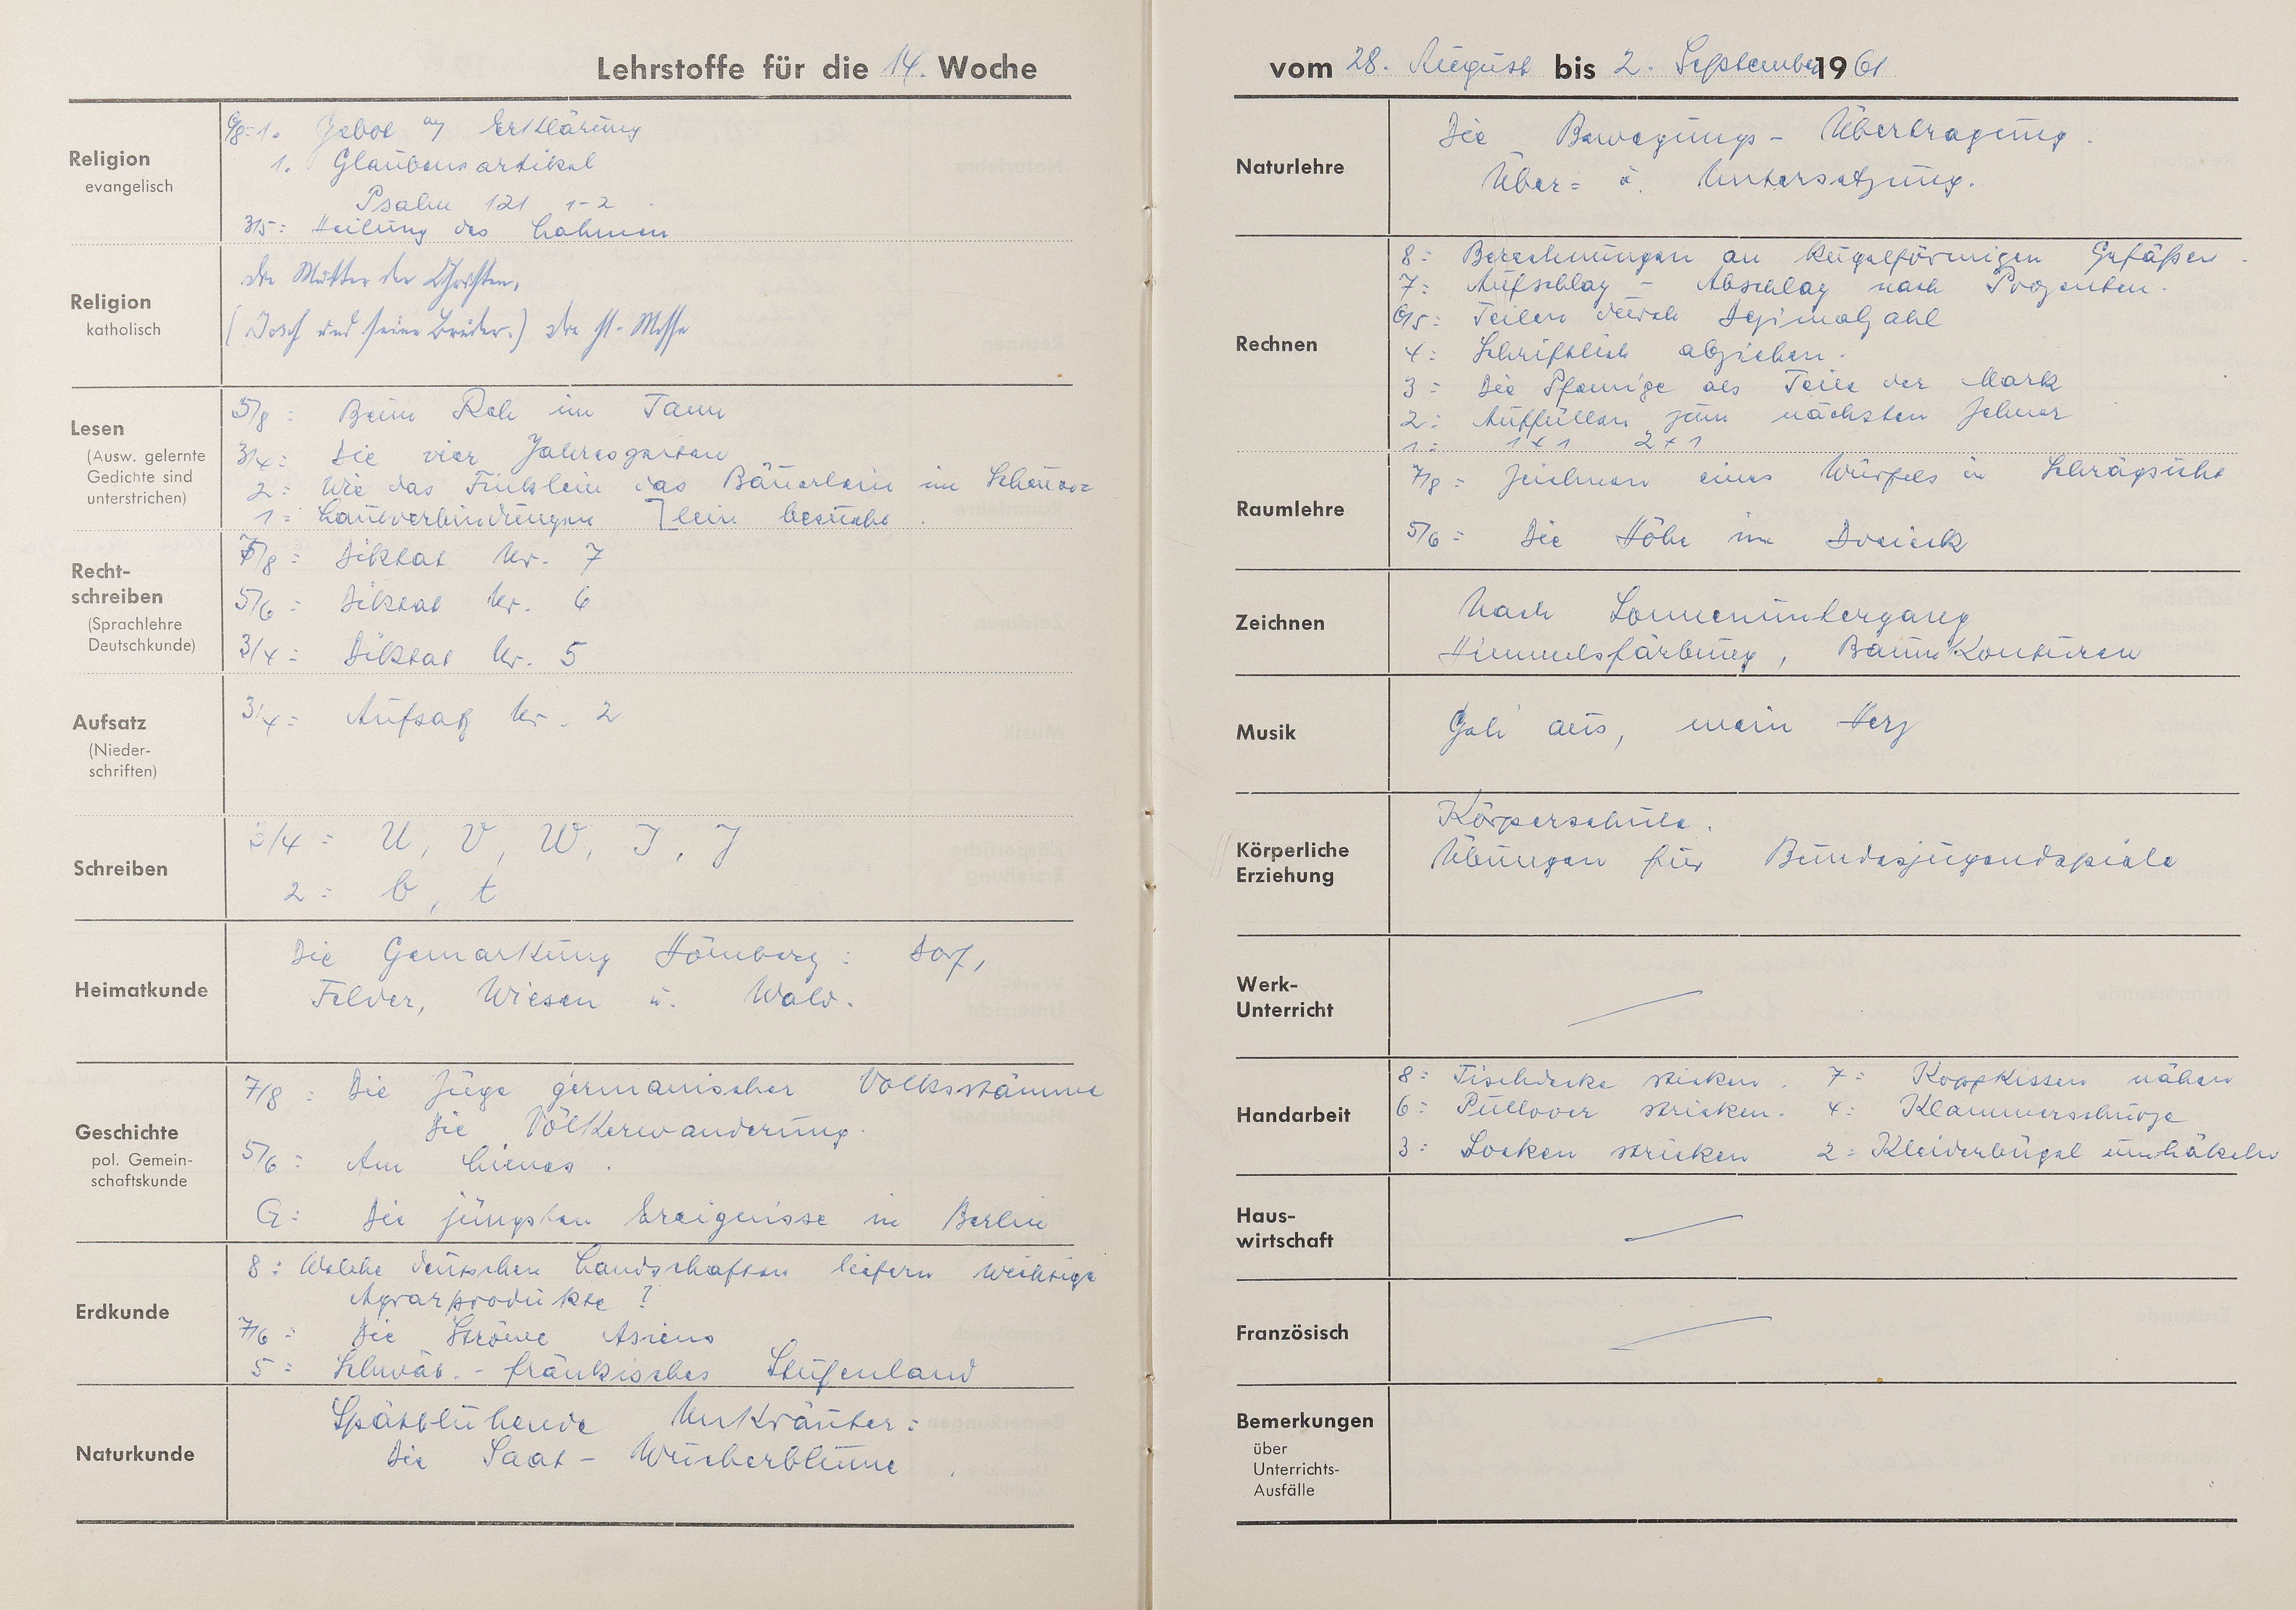 Lehrstoffe für die 14. Woche
Religion
evangelisch
6/8=1. Gebot mit Erklärung
1. Glaubensartikel
Psalm 121 1-2
3/5= Heilung des Lahmen
Religion
katholisch
Die Mutter der Christen,
(Josef und seine Brüder.) Die hl. Messe
Lesen
(Ausw. gelernte
Gedichte sind
unterstrichen)
5/8: Beim Reh im Tann
3/4: Die vier Jahreszeiten
2: Wie das Finklein das Bäuerlein im Scheuer=
1= Lautverbindungen ]lein besucht.
Recht-
schreiben
(Sprachlehre
Deutschkunde)
7/8= Diktat Nr. 7
5/6= Diktat Nr. 6
3/4= Diktat Nr. 5
Aufsatz
(Nieder-
schriften)
3/4= Aufsatz Nr. 2
Schreiben
3/4= U, V, W, I, J
2= b, t
Heimatkunde
Die Gemarkung Hömberg: Dorf,
Felder, Wiesen u. Wald.
Geschichte
pol. Gemein-
schaftskunde
7/8: Die Züge germanischer Volksstämme
Die Völkerwanderung.
5/6= Am Limes.
G= Die jüngsten Ereignisse in Berlin
Erdkunde
8: Welche deutschen Landschaften liefern wichtige
Agrarprodukte?
7/6= Die Ströme Asiens
5= Schwäb.-fränkisches Stufenland
Naturkunde
Spätblühende Unkräuter:
Die Saat-Wucherblume.
vom 28. August bis 2. September 1961
Naturlehre
Die Bewegungs-Übertragung.
Über= u. Untersetzung.
Rechnen
8= Berechnungen an kugelförmigen Gefäßen.
7= Aufschlag - Abschlag nach Prozenten.
6/5= Teilen durch Dezimalzahl
4= Schriftlich abziehen.
3= Die Pfennige als Teile der Mark
2= Auffüllen zum nächsten Zehner
1= 1+1 2+1
Raumlehre
7/8= Zeichnen eines Würfels in Schrägsicht
5/6= Die Höhe im Dreieck
Zeichnen
Nach Sonnenuntergang
Himmelsfärbung, Baumkonturen
Musik
Geh' aus, mein Herz
Körperliche
Erziehung
Körperschule.
Übungen für Bundesjugendspiele
Werk-
Unterricht
Handarbeit
8= Tischdecke sticken. 7= Kopfkissen nähen
6= Pullover stricken. 4= Klammerschürze
3: Socken stricken 2= Kleiderbügel umhäkeln
Haus-
wirtschaft
Französisch
Bemerkungen
über
Unterrichts-
Ausfälle